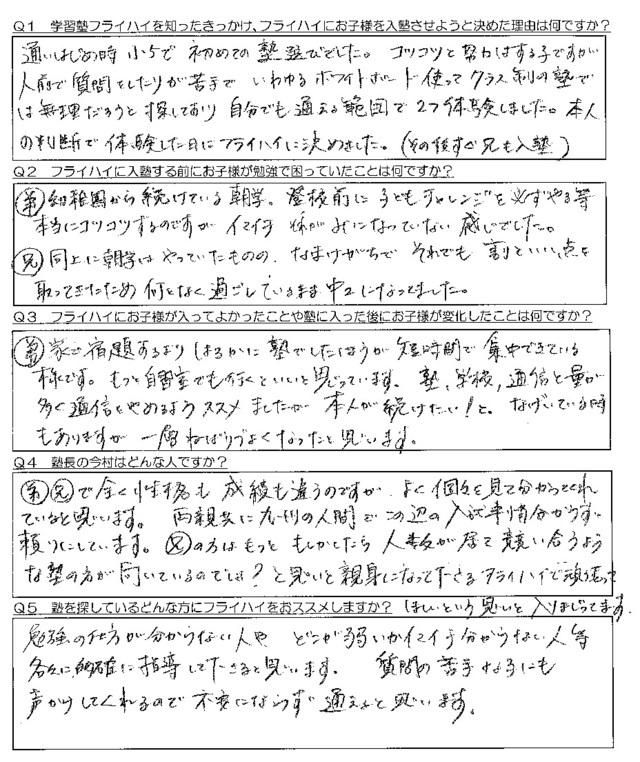 Q1 学習塾フライハイを知ったきっかけ、フライハイにお子様を入塾させようと決めた理由は何ですか？
通いはじめ時 小5で 初めての塾選びでした。 コツコツと努力はする子ですが
人前で質問をしたりが苦手で いわゆるホワイトボード使ってクラス制の塾で
は無理だろうと探しており 自分でも通える範囲で2つ体験しました。本人
の判断で体験した日にフライハイに決めました。（その後すぐ兄も入塾）
Q2 フライハイに入塾する前にお子様が勉強で困っていたことは何ですか？
弟 幼稚園から続けている朝学。登校前に子どもチャレンジを必ずやる等
本当にコツコツするのですが イマイチ 身になっていない感じでした。
兄 同上に朝学はやっていたものの、なまけがちで それでも割といい点を
取ってきたため 何となく過ごしているまま中2になってました。
Q3 フライハイにお子様が入ってよかったことや塾に入った後にお子様が変化したことは何ですか？
弟 家で宿題するより はるかに塾でしたほうが短時間で集中できている
様です。もっと自習室でも行くといいと思っています。塾、学校、通信と量が
多く通信をやめるようススメましたが 本人が続けたい！と。なげいている時
もありますが 一層ねばりづよくなったと思います。
Q4 塾長の今村はどんな人ですか？
弟 兄 で全く性格も成績も違うのですが よく個々を見て分かってくれ
ていると思います。 両親共に九州の人間でこの辺の入試事情分からず
頼りにしています。兄の方はもっと もしかしたら人数が居て競い合うよう
な塾の方が向いているのでは？と思いと親身になって下さるフライハイで頑張って
ほしいという思いと入りまじってます。
Q5 塾を探しているどんな方にフライハイをおススメしますか？
勉強の仕方が分からない人や どこが弱いかイマイチ分からない人等
各々に的確に指導して下さると思います。 質問の苦手な子にも
声かけしてくれるので不安にならず通えると思います。